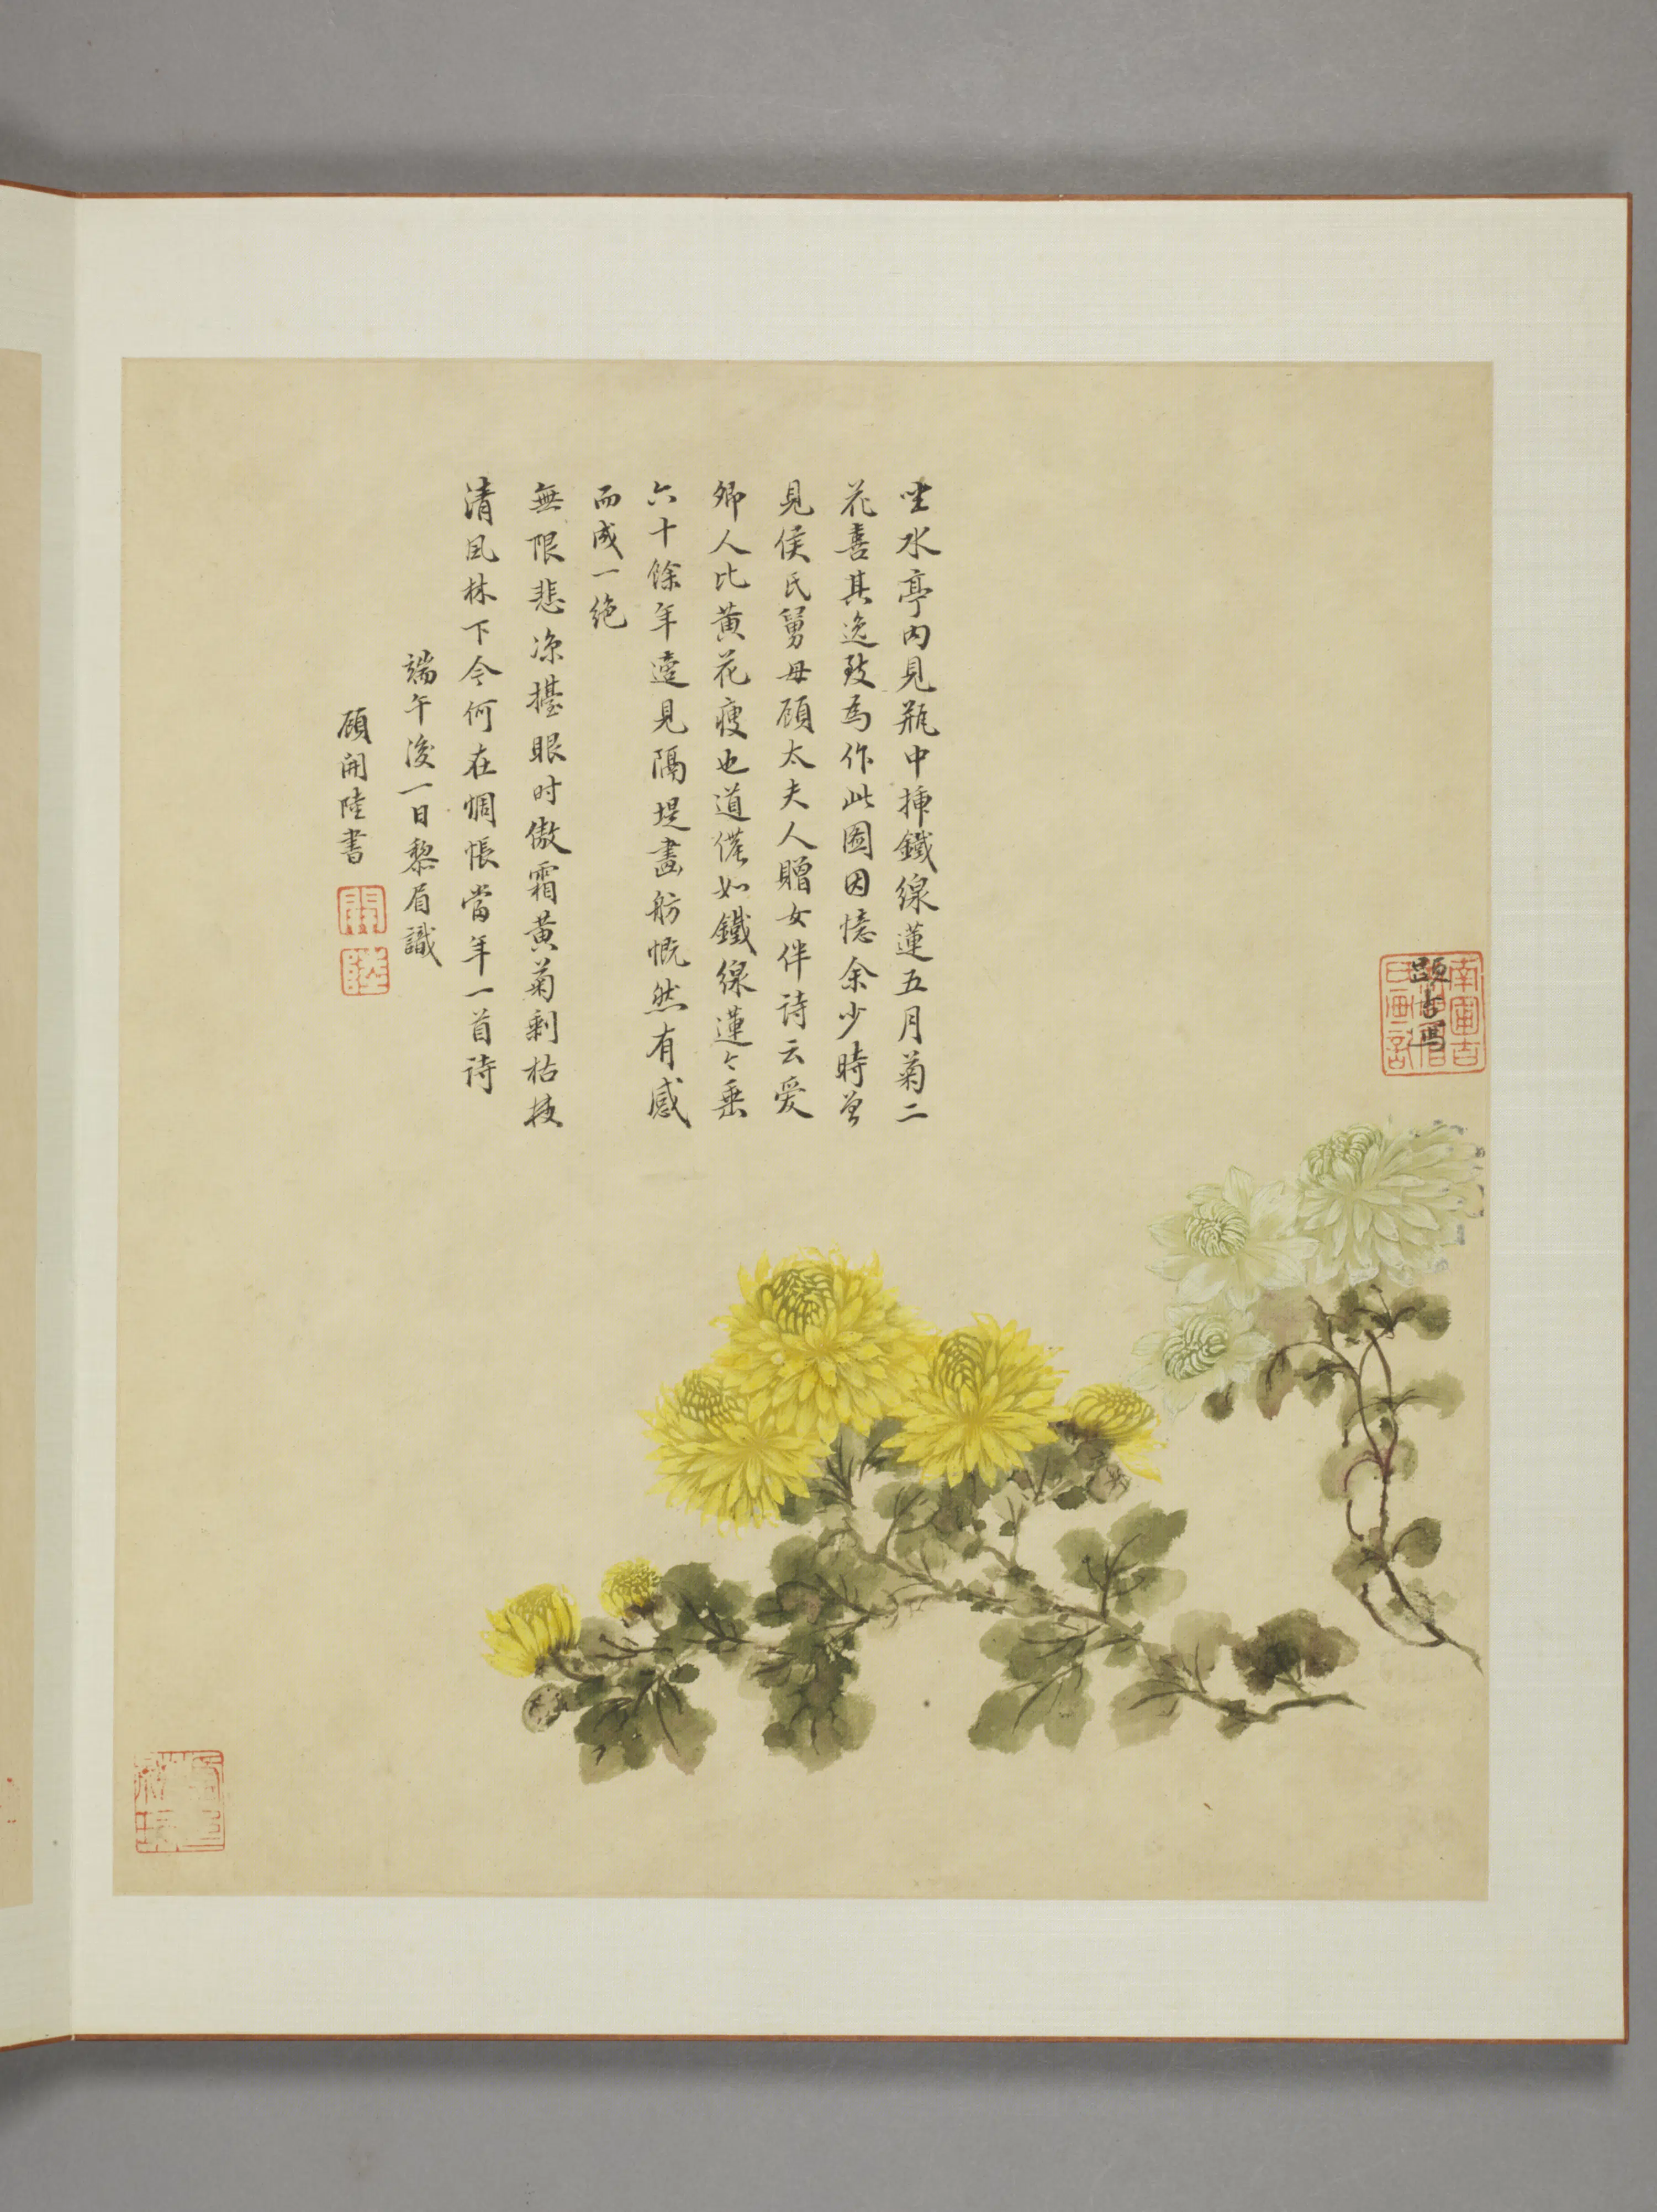 坐水亭内見瓶中揷鐵線蓮五月菊二
花喜其逸致為作此圖因憶余少時曾
見侯氏舅母顧太夫人贈女伴诗云爱
卿人比黄花瘦也道僊如鐵線蓮〻垂
六十餘年遠見隔堤畫舫慨然有感
而成一绝
無限悲涼擡眼时傲霜黄菊剩枯枝
清風林下今何在惆悵當年一首诗
端午後一日黎眉識
顧開陸書
開
陸